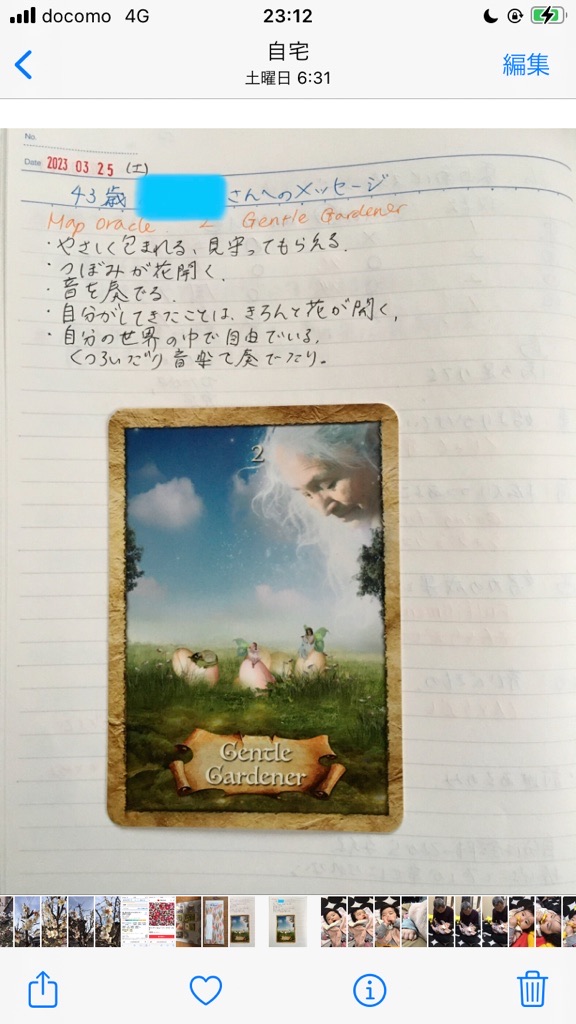 docomo 4G 23:12
自宅
土曜日 6:31
編集
No.
Date 2023 03 25 (土)
43歳 さんへのメッセージ
Map Oracle. 2 Gentle Gardener
・やさしく包まれる、見守ってもらえる.
・つぼみが花開く.
・音を奏でる.
・自分がしてきたことは、きちんと花が開く.
・自分の世界の中で自由でいる.
くつろいだり音楽で奏でたり。
2
Gentle
Gardener